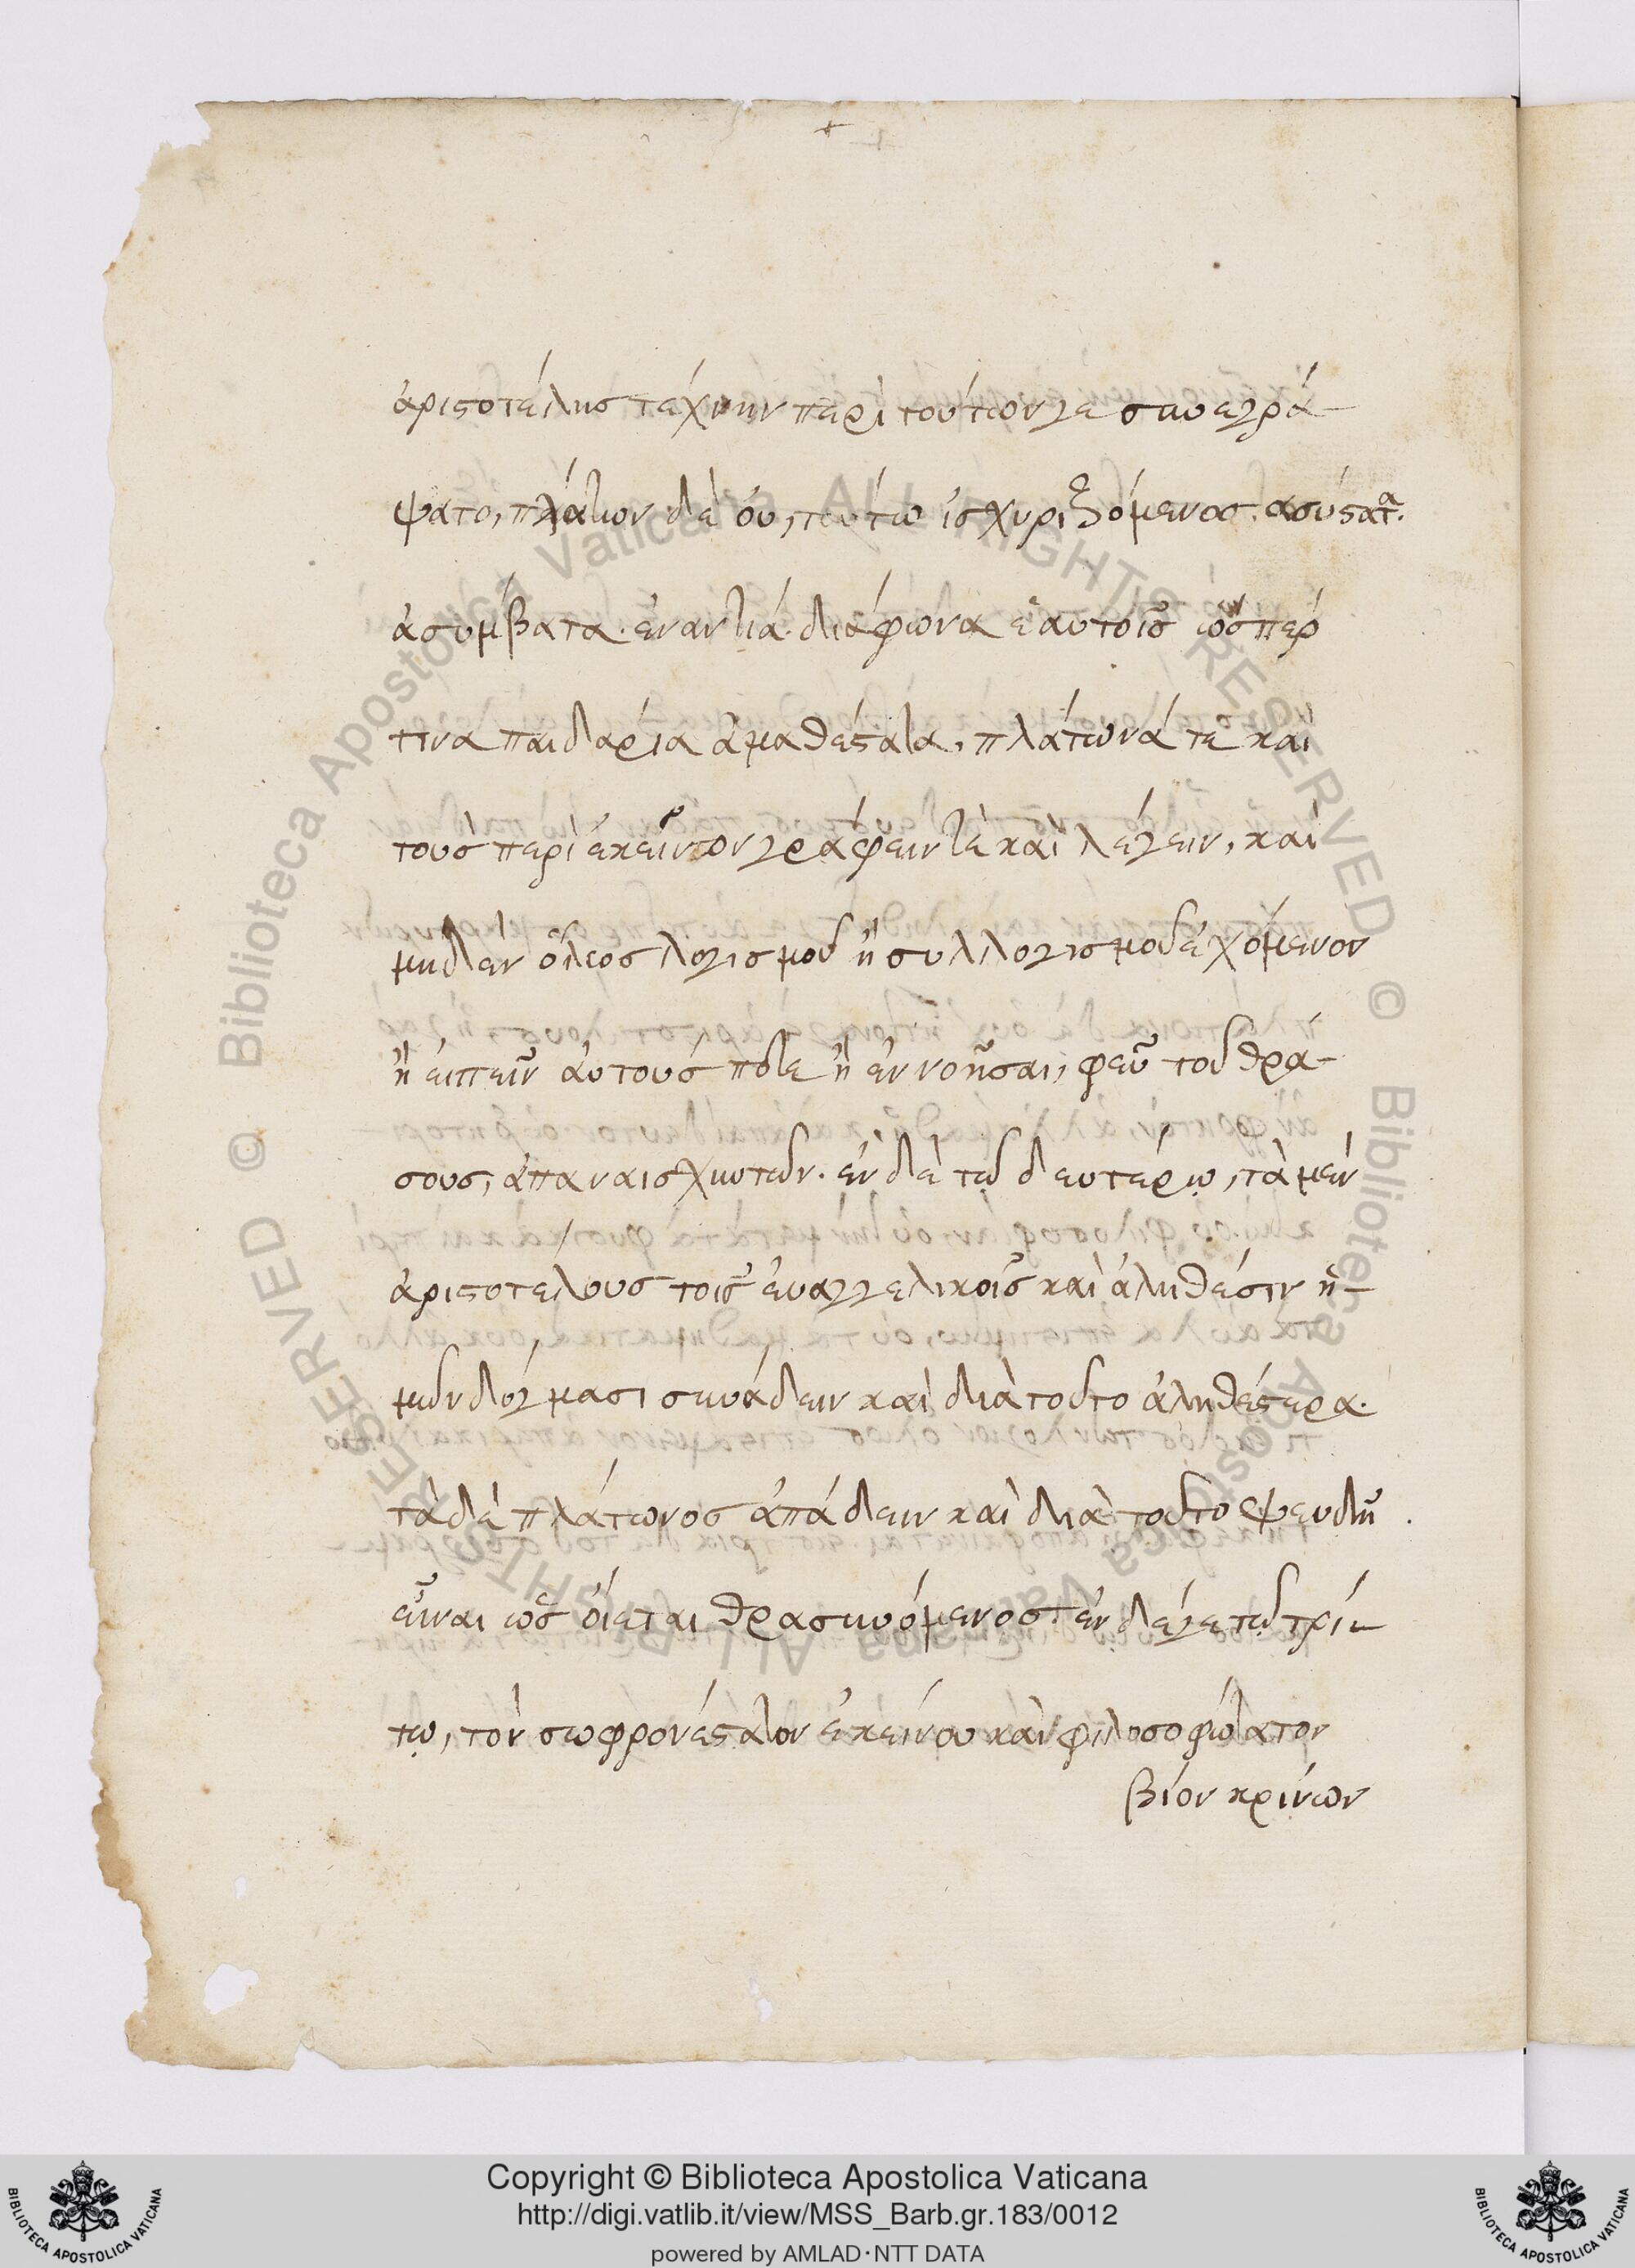 ἀριστοτέλης τέχνην περὶ τούτων γε συνεγρά-
ψατο, πλάτων δὲ οὐ, τούτω ἰσχυριζόμενος. ἀσύστατα.
ἀσύμβατα. ἐναντία. διάφωνα ἑαυτοῖς ὥσπερ
τινα παιδαρία ἀμαθέστατα, πλάτωνά τε καὶ
τοὺς περὶ ἐκεῖνον γράφειν τὲ καὶ λέγειν, καὶ
μηδὲν ὅλως λογισμοῦ ἢ συλλογισμοῦ ἐχόμενον
ἢ εἰπεῖν αὐτούς ποτε ἢ ἐννοῆσαι, φεῦ τοῦ θρά-
σους, ἀπαναισχυντῶν. ἐν δὲ τῷ δευτέρῳ, τὰ μὲν
ἀριστοτέλους τοῖς εὐαγγελικοῖς καὶ ἀληθέσιν ἡ-
μῶν δόγμασι συνάδειν καὶ διὰ τοῦτο ἀληθέστερα.
τὰ δὲ πλάτωνος ἀπάδειν καὶ διὰ τοῦτο ψευδῆ
εἶναι ὡς οἴεται θρασυνόμενος. ἐν δέ γε τῷ τρί-
τῳ, τὸν σωφρονέστατον ἐκείνου καὶ φιλοσοφώτατον
βίον κρίνων
Copyright © Biblioteca Apostolica Vaticana
http://digi.vatlib.it/view/MSS_Barb.gr.183/0012
powered by AMLAD·NTT DATA
BIBLIOTECA APOSTOLICA VATICANA
BIBLIOTECA APOSTOLICA VATICANA
© Biblioteca Apostolica Vaticana ALL RIGHTS RESERVED
© Biblioteca Apostolica Vaticana ALL RIGHTS RESERVED